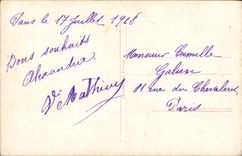 Paris le 17 Juillet 1926
Bons souhaits
Alexandre
Vve Mathieu
Monsieur Camille
Galien
11 rue du Chevaleret
Paris